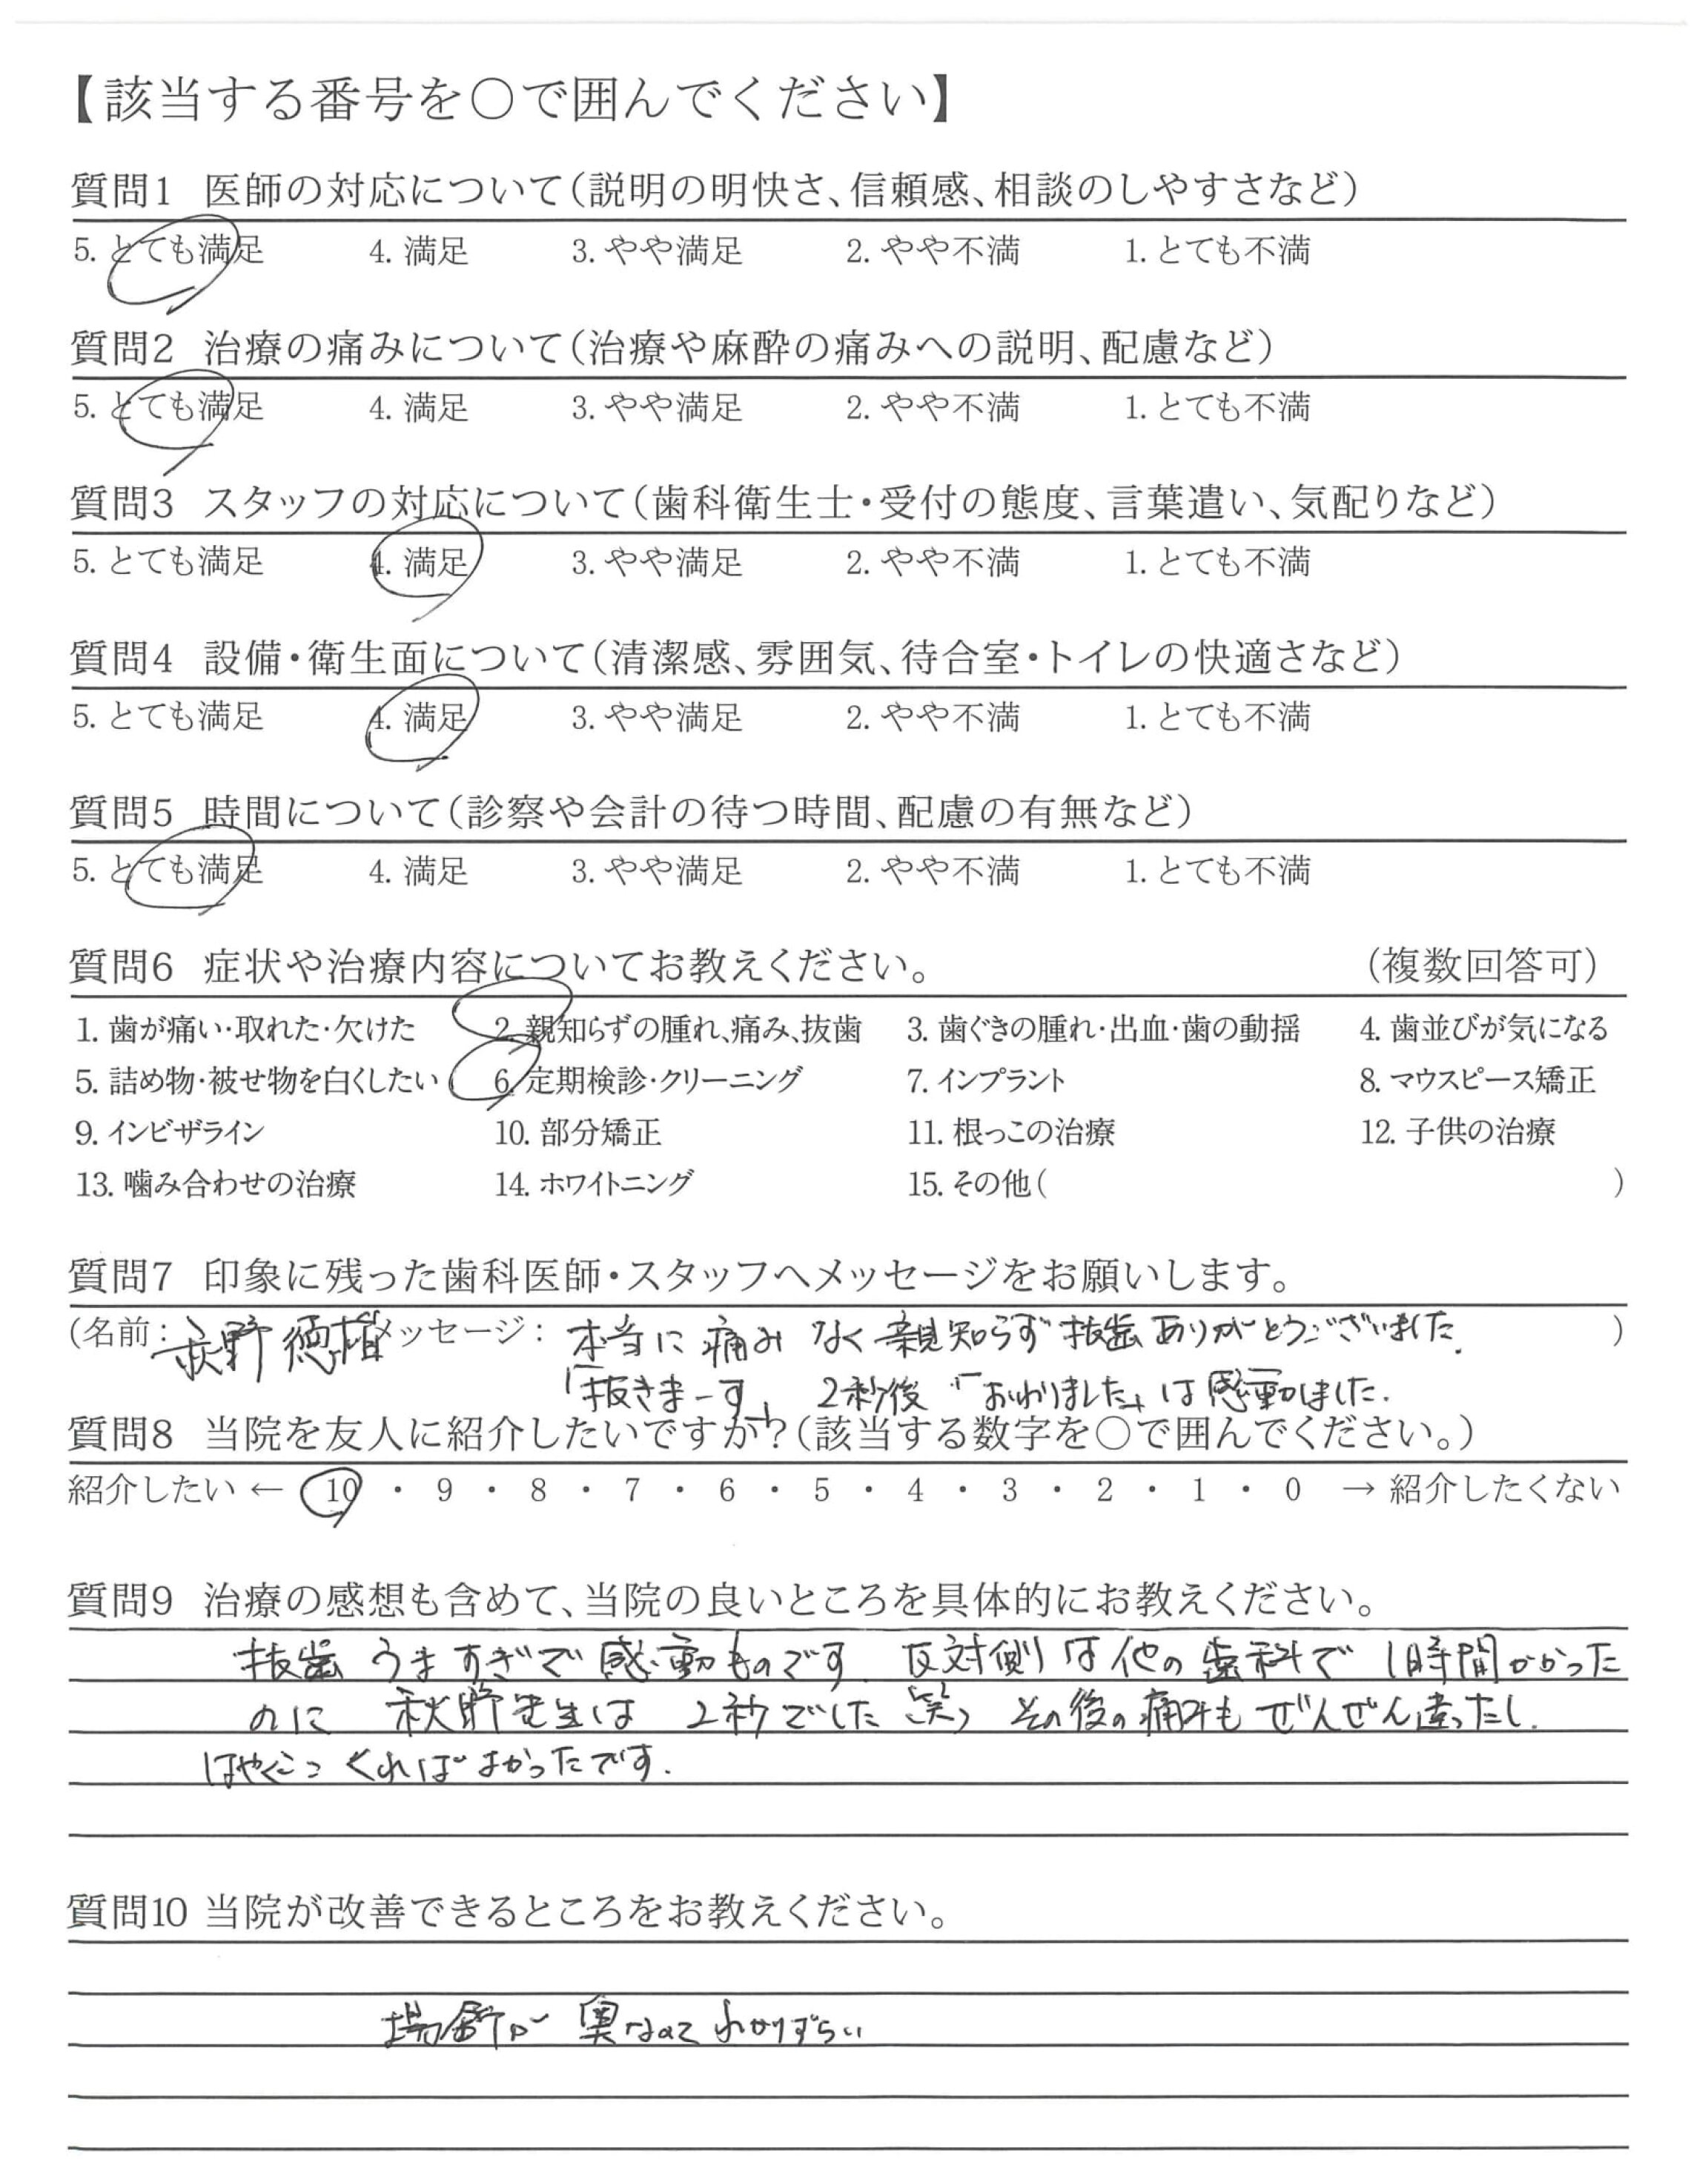 【該当する番号を○で囲んでください】
質問1 医師の対応について(説明の明快さ、信頼感、相談のしやすさなど)
5. とても満足 4. 満足 3. やや満足 2. やや不満 1. とても不満
質問2 治療の痛みについて(治療や麻酔の痛みへの説明、配慮など)
5. とても満足 4. 満足 3. やや満足 2. やや不満 1. とても不満
質問3 スタッフの対応について(歯科衛生士・受付の態度、言葉遣い、気配りなど)
5. とても満足 4. 満足 3. やや満足 2. やや不満 1. とても不満
質問4 設備・衛生面について(清潔感、雰囲気、待合室・トイレの快適さなど)
5. とても満足 4. 満足 3. やや満足 2. やや不満 1. とても不満
質問5 時間について(診察や会計の待つ時間、配慮の有無など)
5. とても満足 4. 満足 3. やや満足 2. やや不満 1. とても不満
質問6 症状や治療内容についてお教えください。 (複数回答可)
1. 歯が痛い・取れた・欠けた 2. 親知らずの腫れ、痛み、抜歯 3. 歯ぐきの腫れ・出血・歯の動揺 4. 歯並びが気になる
5. 詰め物・被せ物を白くしたい 6. 定期検診・クリーニング 7. インプラント 8. マウスピース矯正
9. インビザライン 10. 部分矯正 11. 根っこの治療 12. 子供の治療
13. 噛み合わせの治療 14. ホワイトニング 15. その他( )
質問7 印象に残った歯科医師・スタッフへメッセージをお願いします。
(名前: 秋野 メッセージ: 本当に痛みなく親知らず抜歯ありがとうございました. )
「抜きまーす」 2秒後「おわりました」は感動しました.
質問8 当院を友人に紹介したいですか?(該当する数字を○で囲んでください。)
紹介したい ← 10 ・ 9 ・ 8 ・ 7 ・ 6 ・ 5 ・ 4 ・ 3 ・ 2 ・ 1 ・ 0 → 紹介したくない
質問9 治療の感想も含めて、当院の良いところを具体的にお教えください。
抜歯うますぎで感動ものです. 反対側は他の歯科で1時間かかった
のに 秋野先生は 2秒でした 笑) その後の痛みもぜんぜん違ったし.
はやくここくればよかったです.
質問10 当院が改善できるところをお教えください。
場所が奥なのでわかりずらい